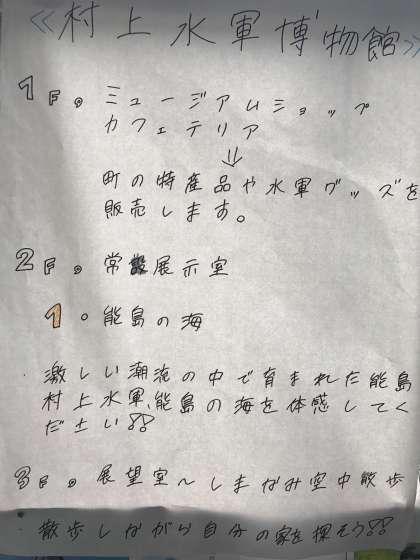 ≪村上水軍博物館≫
1F。ミュージアムショップ
カフェテリア
⇓
町の特産品や水軍グッズを
販売します。
2F。常設展示室
1。能島の海
・激しい潮流の中で育まれた能島
村上水軍、能島の海を体感してく
ださい!!
3F。展望室～しまなみ空中散歩
・散歩しながら自分の家を探そう!!